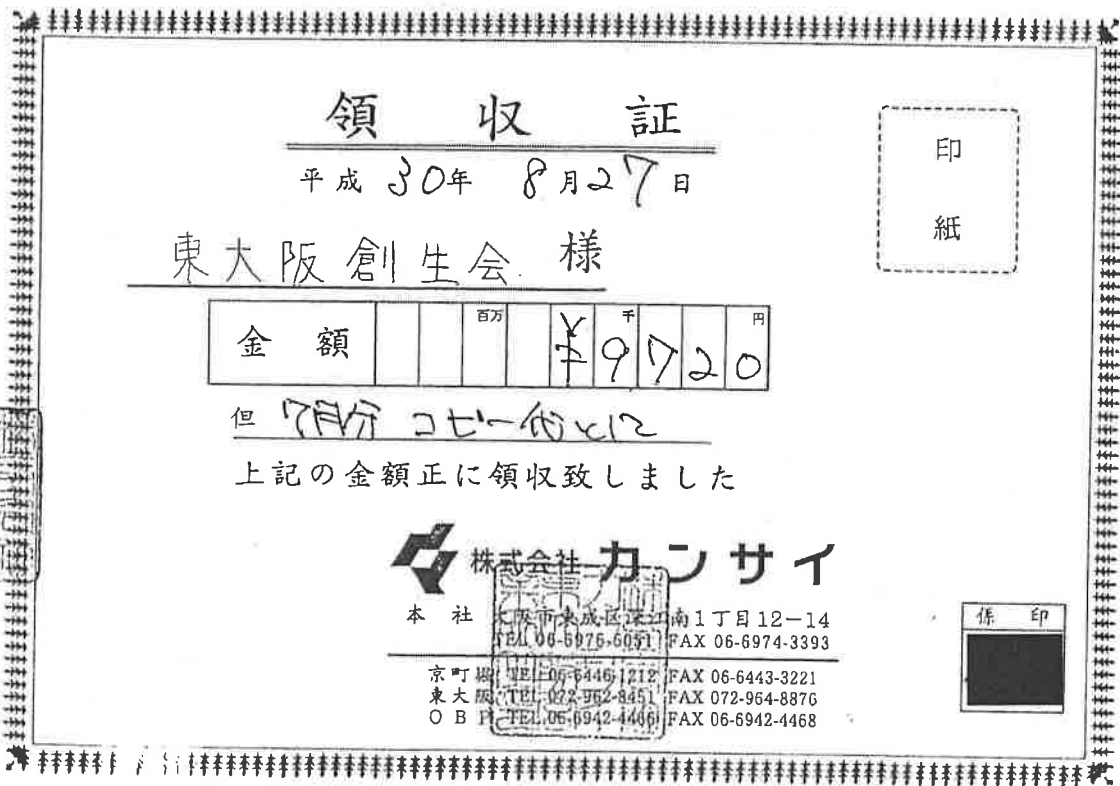 領収証
平成 30年 8月27日
印紙
東大阪創生会 様
金額 百万 千 円 ¥9720
但 7月分 コピー代として
上記の金額正に領収致しました
株式会社 カンサイ
本社 大阪市東成区深江南1丁目12-14
TEL 06-6976-6051 FAX 06-6974-3393
京町堀 TEL 06-6446-1212 FAX 06-6443-3221
東大阪 TEL 072-962-8451 FAX 072-964-8876
OBP TEL 06-6942-4466 FAX 06-6942-4468
係印